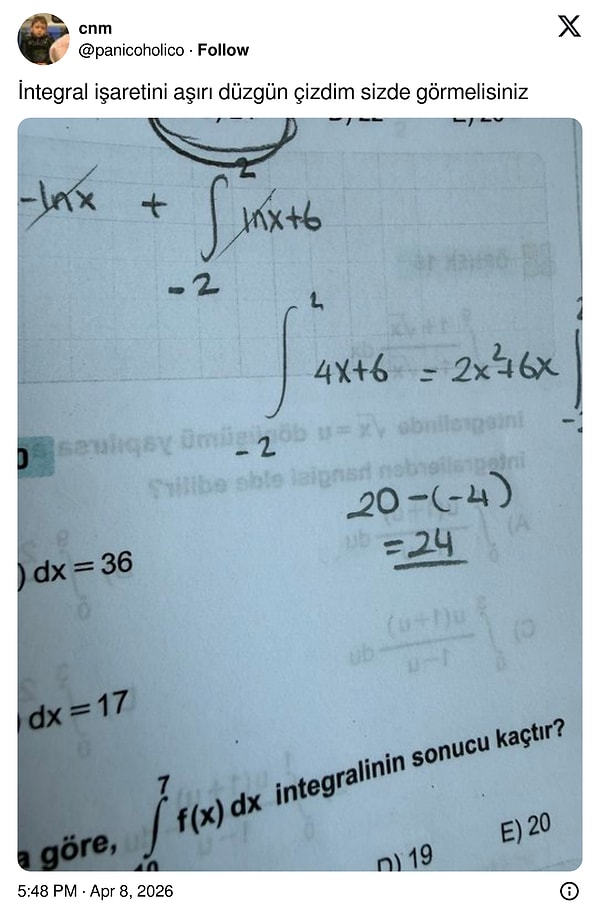 cnm
@panicoholico · Follow
İntegral işaretini aşırı düzgün çizdim sizde görmelisiniz
-lnx + ∫ lnx+6
2
-2
∫ 4x+6 = 2x²+6x
2
-2
20-(-4)
=24
) dx = 36
dx = 17
a göre, ∫ f(x) dx integralinin sonucu kaçtır?
7
10
D) 19
E) 20
5:48 PM · Apr 8, 2026